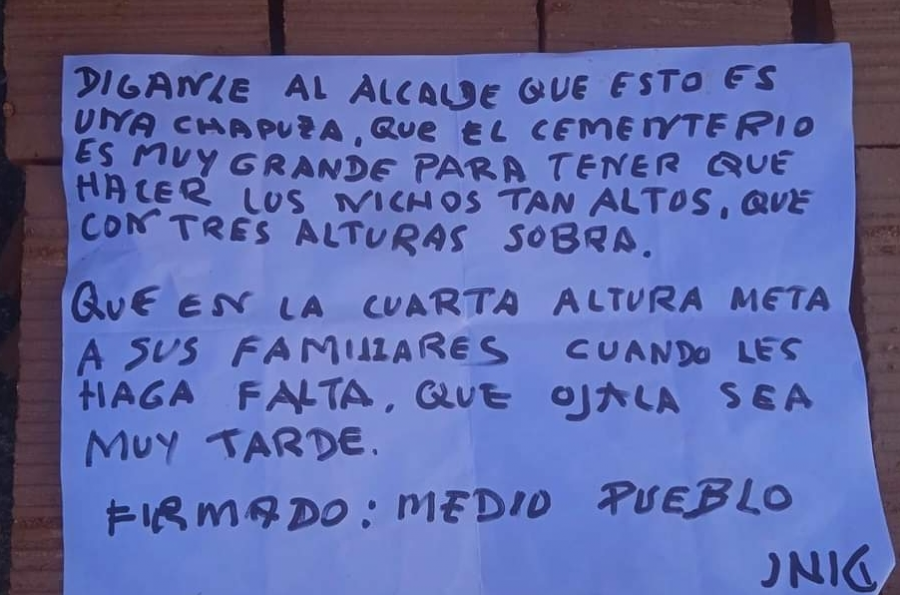 DIGANLE AL ALCALDE QUE ESTO ES
UNA CHAPUZA, QUE EL CEMENTERIO
ES MUY GRANDE PARA TENER QUE
HACER LOS NICHOS TAN ALTOS, QUE
CON TRES ALTURAS SOBRA.
QUE EN LA CUARTA ALTURA META
A SUS FAMILIARES CUANDO LES
HAGA FALTA, QUE OJALA SEA
MUY TARDE.
FIRMADO: MEDIO PUEBLO